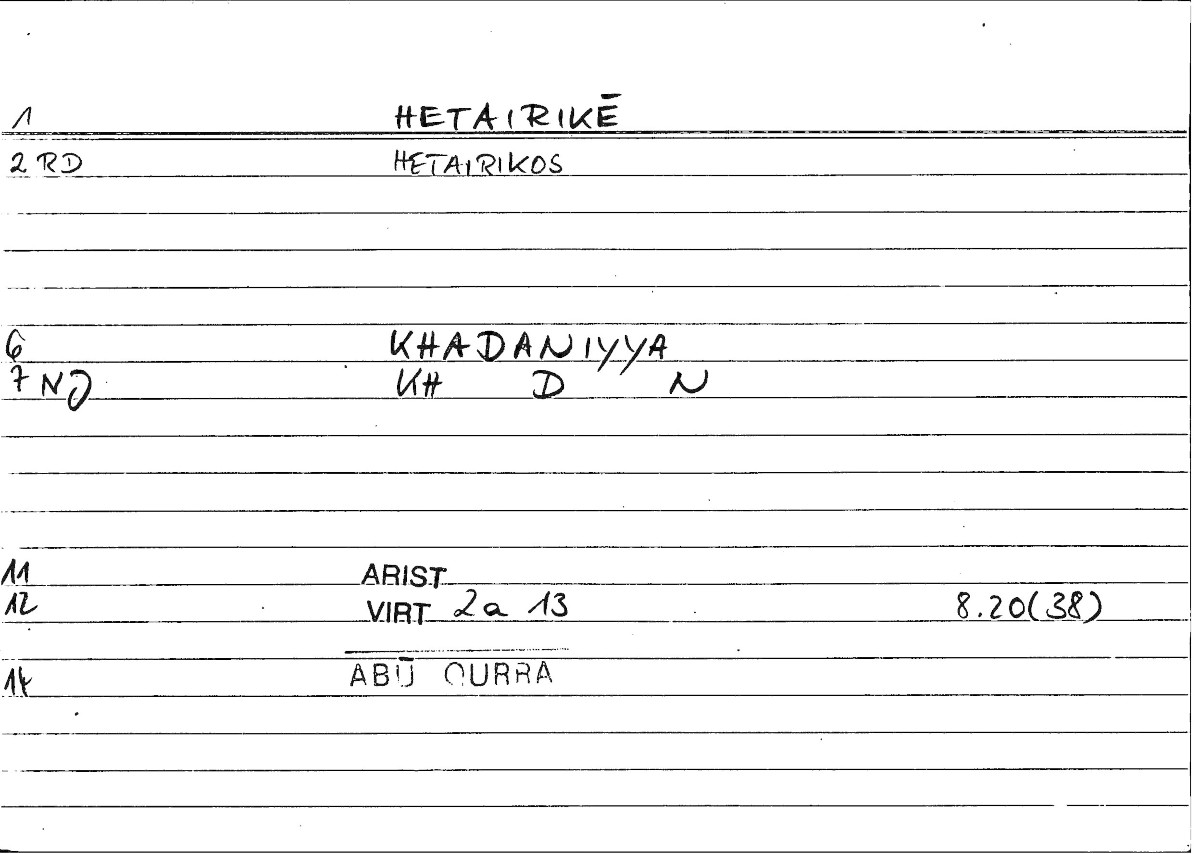 1 HETAIRIKĒ
2 RD HETAIRIKOS
6 KHADANIYYA
7 NJ KH D N
11 ARIST
12 VIRT 2a 13 8.20(38)
14 ABŪ QURRA